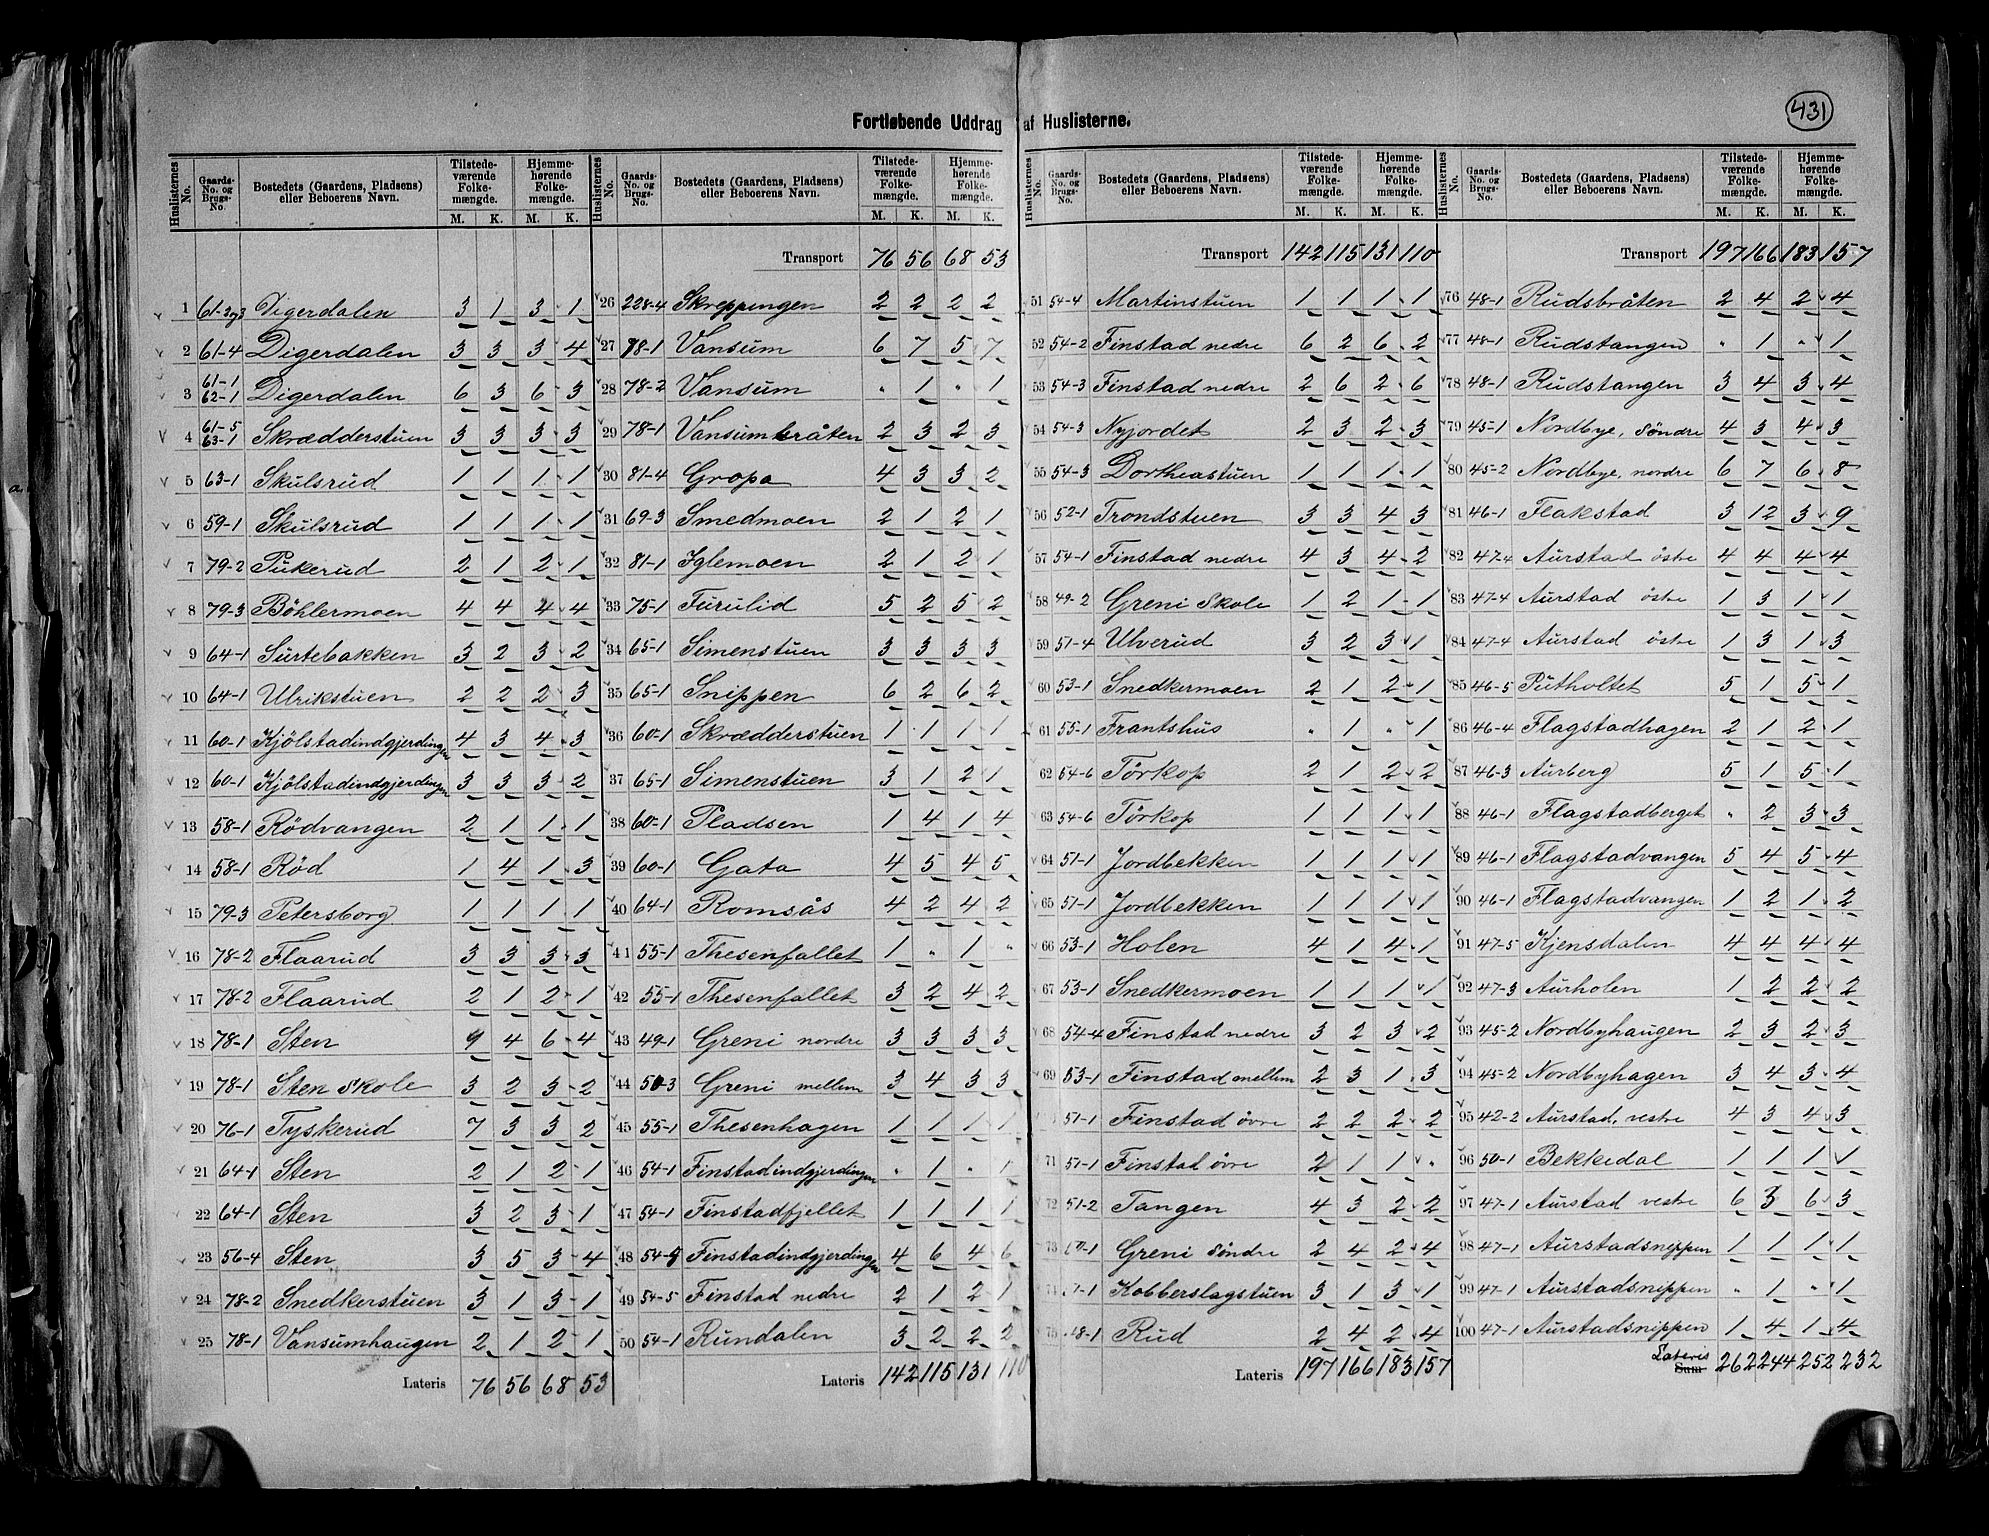 431
Fortløbende Uddrag af Huslisterne.
Huslisternes No. | Gaards-No. og Brugs-No. | Bostedets (Gaardens, Pladsens) eller Beboerens Navn. | Tilstedeværende Folkemængde. M. K. | Hjemmehørende Folkemængde. M. K.
1 61-2og3 Digerdalen 3 1 3 1
2 61-4 Digerdalen 3 3 3 4
3 61-1 62-1 Digerdalen 6 3 6 3
4 61-5 63-1 Skrædderstuen 3 3 3 3
5 63-1 Skulsrud 1 1 1 1
6 59-1 Skulsrud 1 1 1 1
7 79-2 Pukerud 2 1 2 1
8 79-3 Böhlermoen 4 4 4 4
9 64-1 Surtebakken 3 2 3 2
10 64-1 Ulrikstuen 2 2 2 3
11 60-1 Kjölstadindgjerdingen 4 3 4 3
12 60-1 Kjölstadindgjerdingen 3 3 3 2
13 58-1 Rödvangen 2 1 1 1
14 58-1 Röd 1 4 1 3
15 79-3 Petersborg 1 1 1 1
16 78-2 Flaarud 3 3 3 3
17 78-2 Flaarud 2 1 2 1
18 78-1 Sten 9 4 6 4
19 78-1 Sten Skole 3 2 3 2
20 76-1 Tyskerud 7 3 3 2
21 64-1 Sten 2 1 2 1
22 64-1 Sten 3 2 3 1
23 56-4 Sten 3 5 3 4
24 78-2 Snedkerstuen 3 1 3 1
25 78-1 Vansumhaugen 2 1 2 1
Lateris 76 56 68 53
Huslisternes No. | Gaards-No. og Brugs-No. | Bostedets (Gaardens, Pladsens) eller Beboerens Navn. | Tilstedeværende Folkemængde. M. K. | Hjemmehørende Folkemængde. M. K.
Transport 76 56 68 53
26 228-4 Skreppingen 2 2 2 2
27 78-1 Vansum 6 7 5 7
28 78-2 Vansum " 1 " 1
29 78-1 Vansumbråten 2 3 2 3
30 81-4 Gropa 4 3 3 2
31 69-3 Smedmoen 2 1 2 1
32 81-1 Iglemoen 2 1 2 1
33 75-1 Furulid 5 2 5 2
34 65-1 Simenstuen 3 3 3 3
35 65-1 Snippen 6 2 6 2
36 60-1 Skrædderstuen 1 1 1 1
37 65-1 Simenstuen 3 1 2 1
38 60-1 Pladsen 1 4 1 4
39 60-1 Gata 4 5 4 5
40 64-1 Romsås 4 2 4 2
41 55-1 Thesenfallet 1 " 1 "
42 55-1 Thesenfallet 3 2 4 2
43 49-1 Greni nordre 3 3 3 3
44 50-3 Greni mellem 3 4 3 3
45 55-1 Thesenhagen 1 1 1 1
46 54-1 Finstadindgjerdingen " 1 " 1
47 54-1 Finstadfjellet 1 1 1 1
48 54-5 Finstadindgjerdingen 4 6 4 6
49 54-5 Finstad nedre 2 1 2 1
50 54-1 Rundalen 3 2 2 2
Lateris 142 115 131 110
Huslisternes No. | Gaards-No. og Brugs-No. | Bostedets (Gaardens, Pladsens) eller Beboerens Navn. | Tilstedeværende Folkemængde. M. K. | Hjemmehørende Folkemængde. M. K.
Transport 142 115 131 110
51 54-4 Martinstuen 1 1 1 1
52 54-2 Finstad nedre 6 2 6 2
53 54-3 Finstad nedre 2 6 2 6
54 54-3 Nyjordet 2 3 2 3
55 54-3 Dortheastuen 1 1 1 1
56 52-1 Trondstuen 3 3 4 3
57 54-1 Finstad nedre 4 3 4 2
58 49-2 Greni Skole 1 2 1 1
59 51-4 Ulverud 3 2 3 1
60 53-1 Snedkermoen 2 1 2 1
61 55-1 Frantshus " 1 " 1
62 54-6 Törkop 2 1 2 2
63 54-6 Törkop 1 1 1 1
64 51-1 Jordbekken 1 1 1 1
65 51-1 Jordbekken 1 1 1 1
66 53-1 Holen 4 1 4 1
67 53-1 Snedkermoen 1 1 1 1
68 54-4 Finstad nedre 3 2 3 2
69 53-1 Finstad mellem 2 3 1 3
51-1 Finstad övre 2 2 2 2
71 51-1 Finstad övre 2 1 1 "
72 51-2 Tangen 4 3 2 2
73 Greni Söndre 2 4 2 4
Kobberslagstuen 3 1 3 1
75 48-1 Rud 2 4 2 4
Lateris 197 166 183 157
Huslisternes No. | Gaards-No. og Brugs-No. | Bostedets (Gaardens, Pladsens) eller Beboerens Navn. | Tilstedeværende Folkemængde. M. K. | Hjemmehørende Folkemængde. M. K.
Transport 197 166 183 157
76 48-1 Rudsbråten 2 4 2 4
77 48-1 Rudstangen " 1 " 1
78 48-1 Rudstangen 3 4 3 4
79 45-1 Nordbye, Söndre 4 3 4 3
80 45-2 Nordbye, nordre 6 7 6 8
81 46-1 Flakstad 3 12 3 9
82 47-4 Aurstad östre 4 4 4 4
83 47-4 Aurstad östre 1 3 1 1
84 47-4 Aurstad östre 1 3 1 3
85 46-5 Putholtet 5 1 5 1
86 46-4 Flagstadhagen 2 1 2 1
87 46-3 Aurberg 5 1 5 1
88 46-1 Flagstadberget " 2 3 3
89 46-1 Flagstadvangen 5 4 5 4
90 46-1 Flagstadvangen 1 2 1 2
91 47-5 Kjensdalen 4 4 4 4
92 47-3 Aurholen 1 2 2 2
93 45-2 Nordbyhaugen 2 3 2 3
94 45-2 Nordbyhagen 3 4 3 4
95 42-2 Aurstad, vestre 4 3 4 3
96 50-1 Bekkedal 1 1 1 1
97 47-1 Aurstad vestre 6 3 6 3
98 47-1 Aurstadsnippen 1 1 1 1
99 47-1 Aurstadsnippen " 1 " 1
100 47-1 Aurstadsnippen 1 4 1 4
Lateris
Sum 262 244 252 232